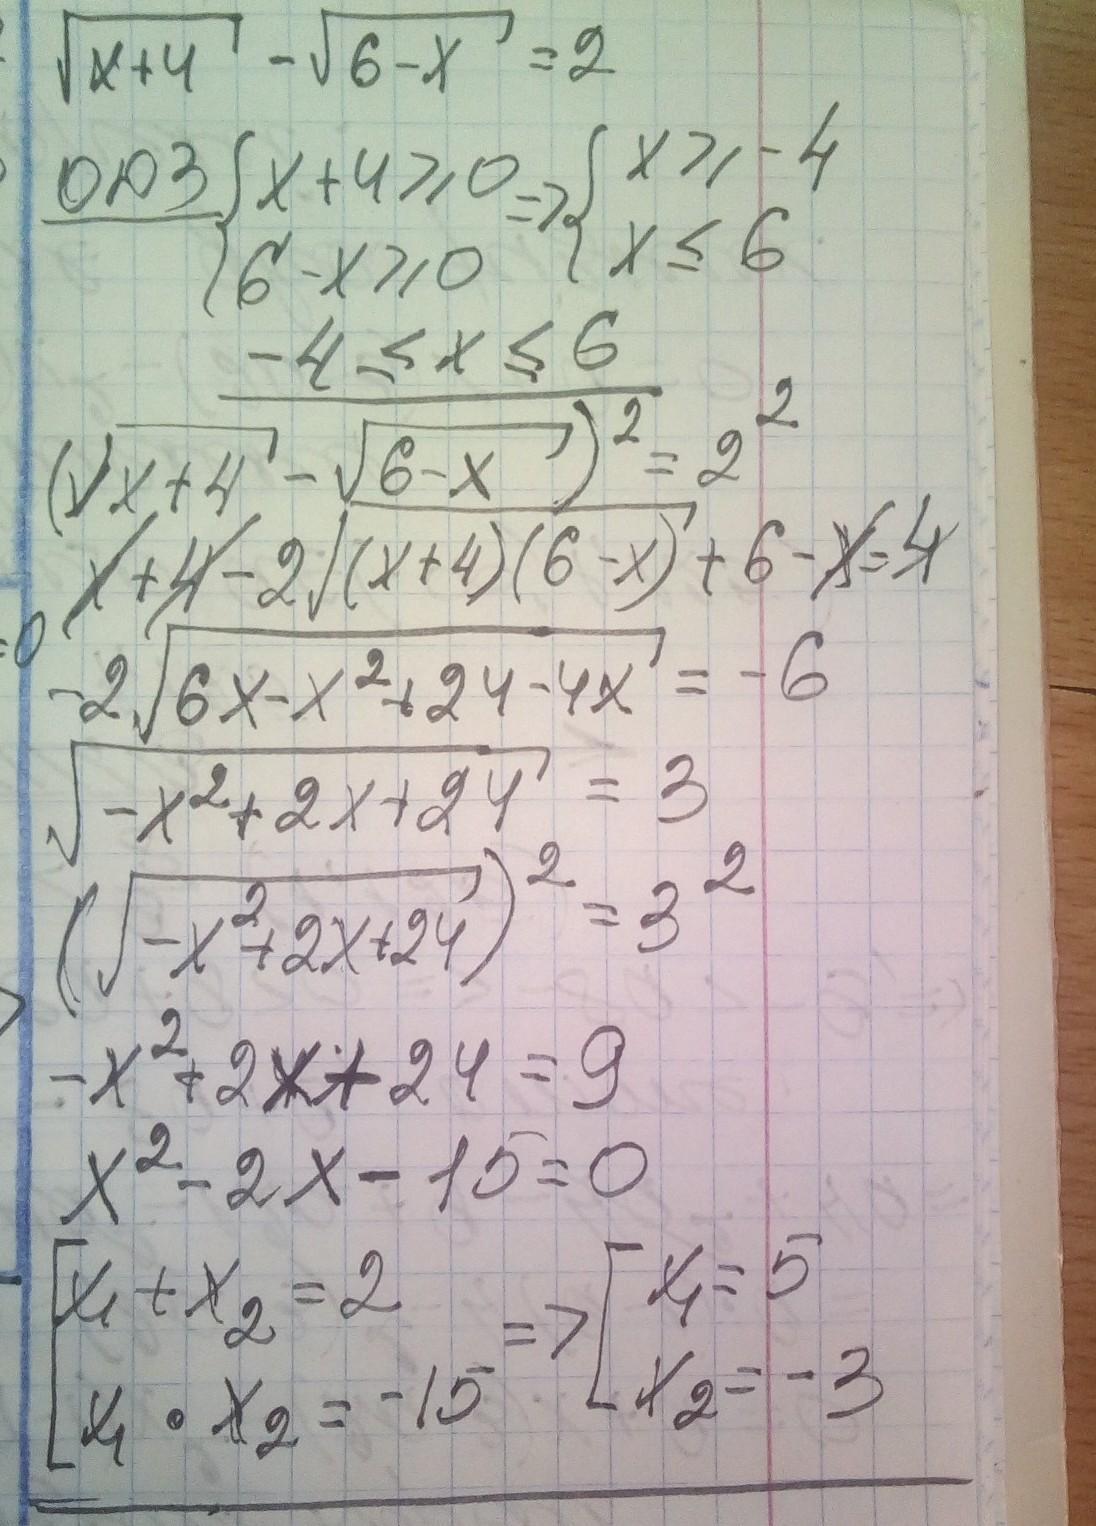 √(x+4) - √(6-x) = 2
ОДЗ { x+4 ⩾ 0 => { x ⩾ -4
6-x ⩾ 0 x ≤ 6
-4 ≤ x ≤ 6
(√(x+4) - √(6-x))² = 2²
x+4-2√((x+4)(6-x)) + 6-x = 4
=0
-2√(6x-x²+24-4x) = -6
√(-x²+2x+24) = 3
(√(-x²+2x+24))² = 3²
-x²+2x+24 = 9
x²-2x-15 = 0
[ x₁+x₂ = 2 => [ x₁ = 5
x₁•x₂ = -15 x₂ = -3